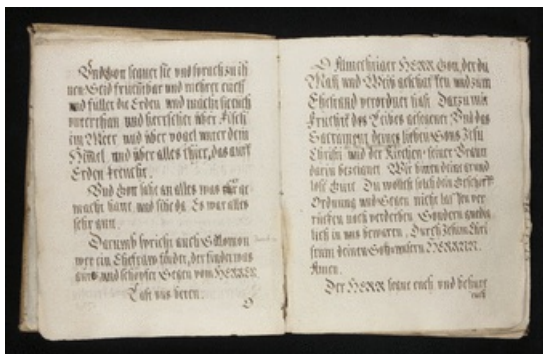 Und Gott segnet sie und sprach zu ih
nen Seid fruchtbar und mehret euch
und füllet die Erden und macht sie euch
unterthan und herrschet über Fisch
im Meer und über vogel unter dem
Himel und über alles thier, das auff
Erden kreucht.
Und Gott sahe an alles was er ge
macht hatte, und sihe da Es war alles
sehr gutt.
Darumb spricht auch Salomon
wer ein Ehefraw findet, der findet was
guts und schöpfet Segen vom HERREN
Last uns beten.
O
O Allmechtiger HERR Gott, der du
Mann und Weib geschaffen und zum
Ehestand verordnet hast Darzu mit
Frucht des Leibes gesegnet Und das
Sacrament deines lieben Sons Jesu
Christi und der Kirchen seiner Braut
darin bezeichnet Wir bitten deine grund
lose Gute Du wollest solch dein Geschepff
Ordnung und Segen nicht lassen ver
rücken noch verderben Sondern gnedig
lich in uns bewaren, Durch Jesum Chri
stum deinen Son unsern HERRNN.
Amen.
Der HERR segne euch und behüte
euch